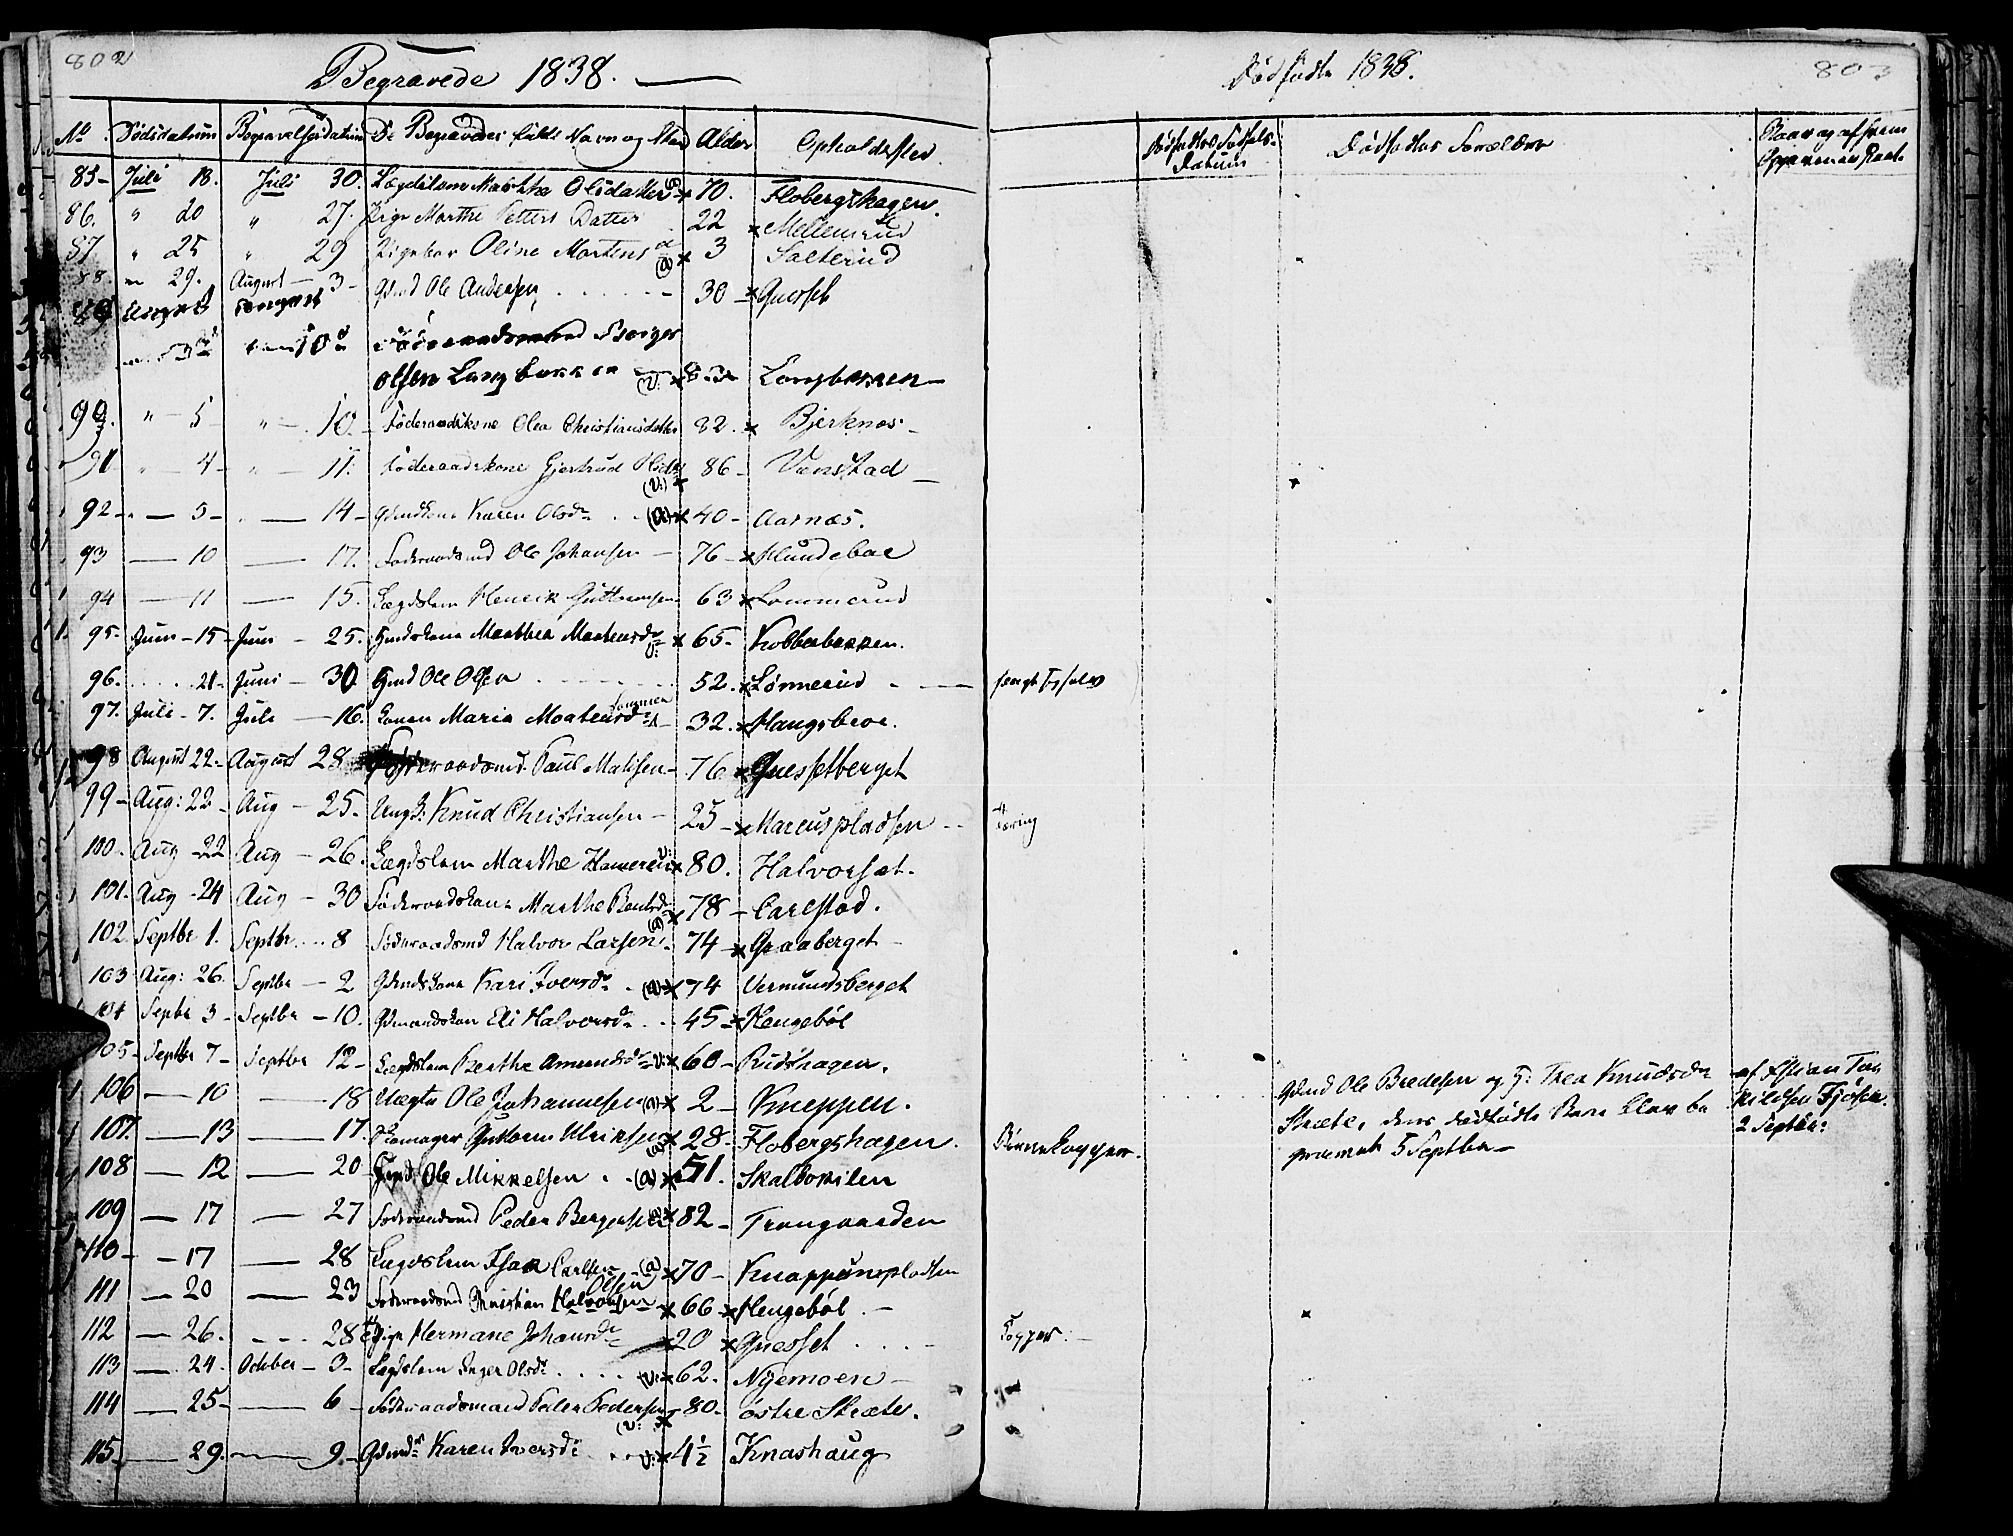 802
Begravede 1838.
No Dødsdatum Begravelsesdatum De Begravedes fulde Navn og Alder Opholdssted
85 - Juli 18. Juli 30. Lægdslem Martha Olsdatter 70. Flobergshagen.
86. " 20 " 27. Pige Marthe Petters Datter 22 Mellemrud
87 " 25 " 29 Pigebar Oline Martens (a) 3 Salterud
88. 29. August - 3 - Gmd Ole Andersen 30 - Guesset
89 August 3 August 10 Føderaadsmand Børger
Olsen Langbakken (V: 83 Langbakken -
90. " - 5 " - 10 - Føderaadskone Olea Christiansdatter 82. Bjerknæs -
91 " - 4 - " - 11. Føderaadskone Gjertrud Olsdr (V:) 86 - Vanstad -
92 - - 5 - - 14 - Gmdkone Karen Olsdr (a) 40 - Aarnæs.
93 - 10 - 17. Føderaadsmd Ole Johansen - 76 - Hundeboe
94 - 11 - 15. Lægdslem Henrik Guttormsen 63 Lommerud
95. Juni - 15 - Juni - 25. Gmdskone Marthea Mortensdr V: 65 - Kobberbakken.
96. 21 - Juni - 30 Gmd Ole Olsen 52. Lønnerud - -
97. Juli - 7. Juli - 16. Konen Maria Mortensdr 32. Haugsbroe.
98 August 22. - August 28 Føderaadsmd. Paul Mathsen - 76 Guessetberget
99 - Aug: 22 - Aug - 25. Ung. Knud Christiansen - 25 - Marcuspladsen - -
100. Aug - 22 Aug - 26. Lægdslem Marthe Hamerud V: 80. Halvorset.
101. Aug - 24 Aug - 30 Føderaadskone Marthe Bentsdr 78 - Carlstad.
102 Septbr 1. Septbr. 8 Føderaadsmd Halvor Larsen (a) 74 - Graaberget -
103 Aug: 26. Septbr - 2 Gmdskone Kari Iversdr (a) 74 Vermundsberget
104 Septbr 3 - Septbr - 10. Gmandskon Eli Halvorsdr 45 - Hengebøl
105 - Septbr 7 - Septbr 12 - Lægdslem Berthe Amundsdr V: 60 - Rudshagen.
106 - 10 - 18 Ole Johannesen (a) 2 - Kneppen.
107. - 13 - 17. Skomager Guttorm Ulriksen (a) 28 - Flobergshagen.
108 - 12 - 20 Gmd Ole Mikkelsen (a) 51. Skalbokilen
109 - 17 - 27 Føderaadsmd Peder Bergersen 82 - Trangaarden
110 - - 17 - 28 Lægdslem Isak Carlsen (a) 70 - Knappumpladsen
111 - 20 - 23 Føderaadsmd Christian Halvorsen Olsen 66 - Hengebøl. -
112 - 26. - 28 Pige Hermane Johansdr 20 Guesset
113 - 24. October - 3 - Lægdslem Inger Olsdr (V: 62. Nyemoen -
114 - 25 - - 6 - Føderaadsmand Peder Pedersen (V: 80. østre Skræte.
115. - 29. - 9. - Gmdr Karen Iversdr V: 4½ Knashaug
803
Dødfødte 1838.
Dødfødtes Fødsels-
Datum
Dødfødtes Forældre
Tæring
Børnekopper.
Kopper. -
Gmd Ole Bredesen og H: Thea Knudsdr
Skræte, deres dødfødte Barn blev be
gravet 5 Septbr -
af Kristian Tor
kildsen Fjøsen.
2 Septbr: